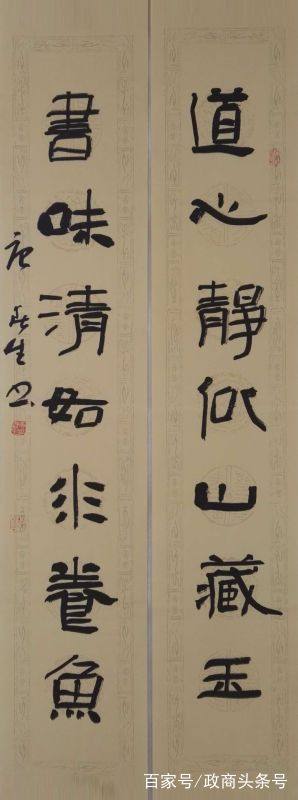 道心靜似山藏玉
書味清如水養魚
书
百家号/政商头条号